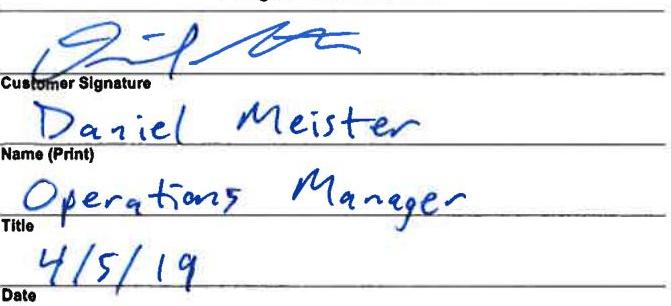 Customer Signature
Daniel Meister
Name (Print)
Operations Manager
Title
4/5/19
Date